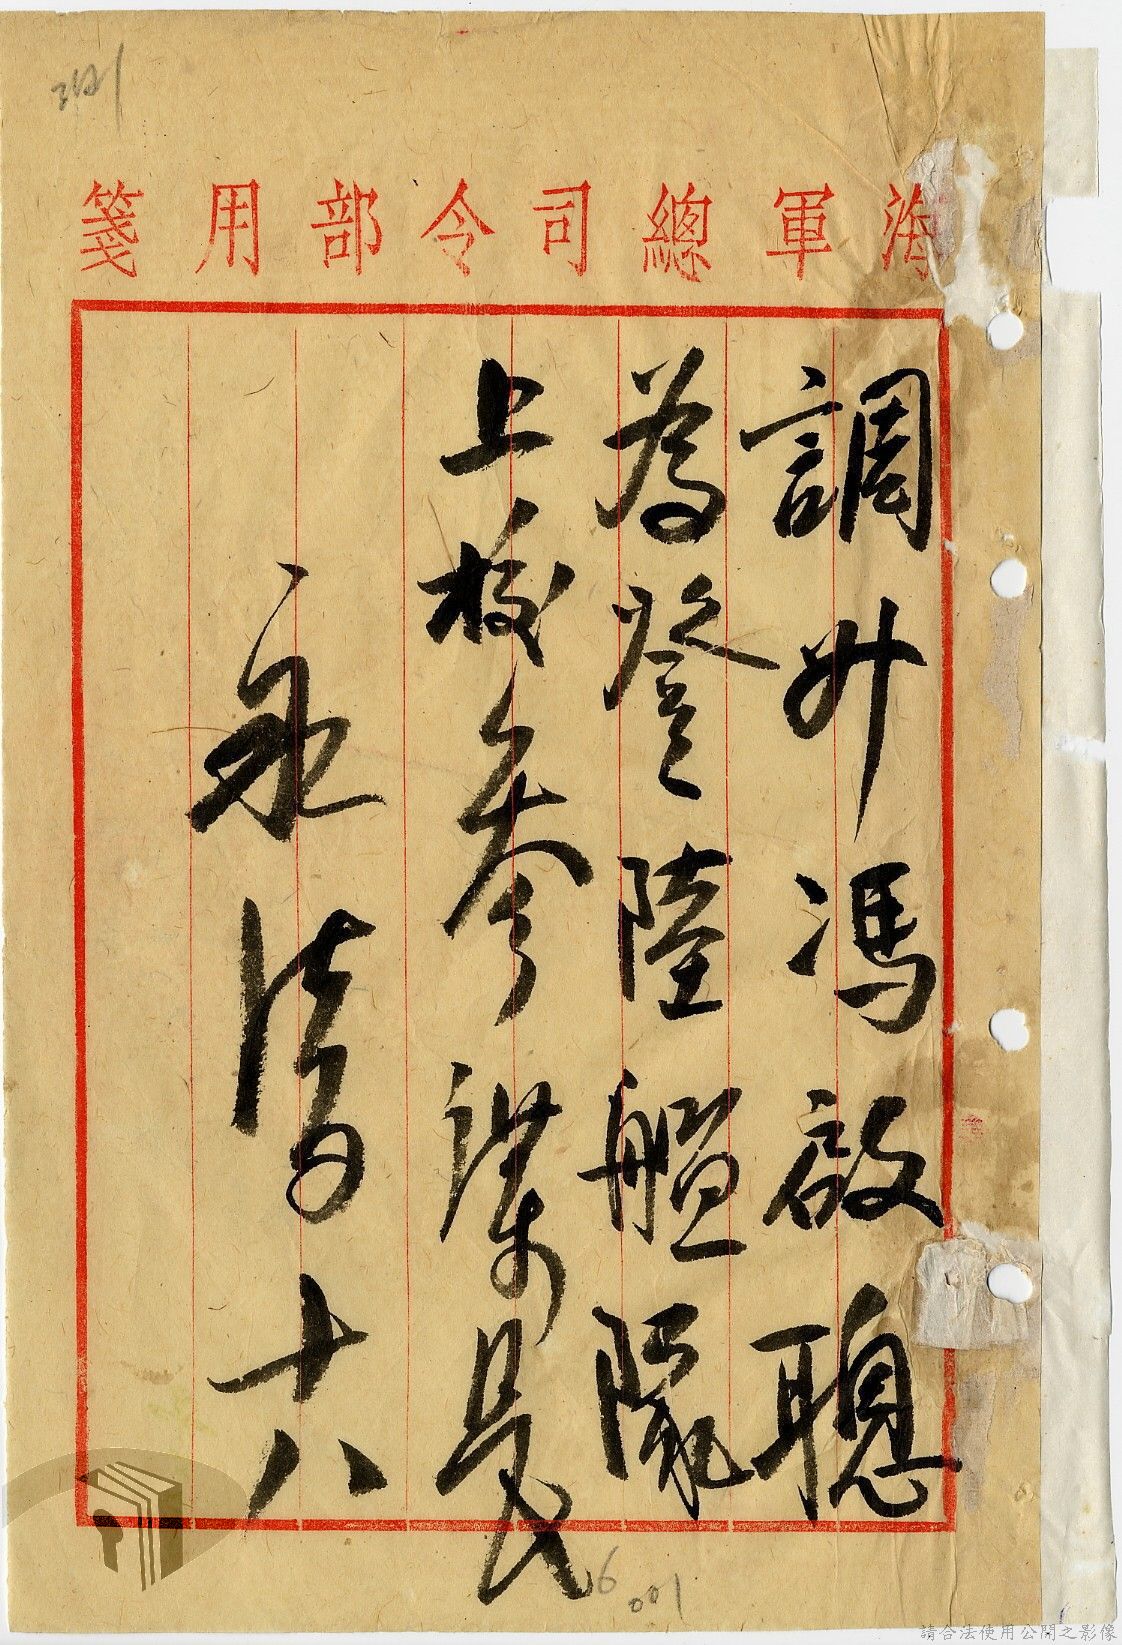 海軍總司令部用箋
調升馮啟聰
為登陸艦隊
上校參謀長
永清 十八
6
001
請合法使用公開之影像